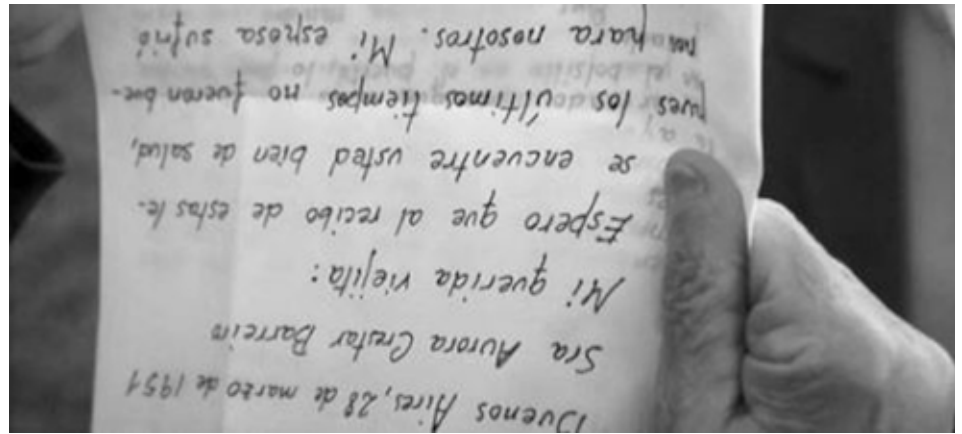 Buenos Aires, 28 de marzo de 1951
Sra Aurora Crestar Barreiro
Mi querida viejita:
Espero que al recibo de estas le-
se encuentre usted bien de salud,
pues los últimos tiempos no fueron bue-
para nosotros. Mi esposa sufrió